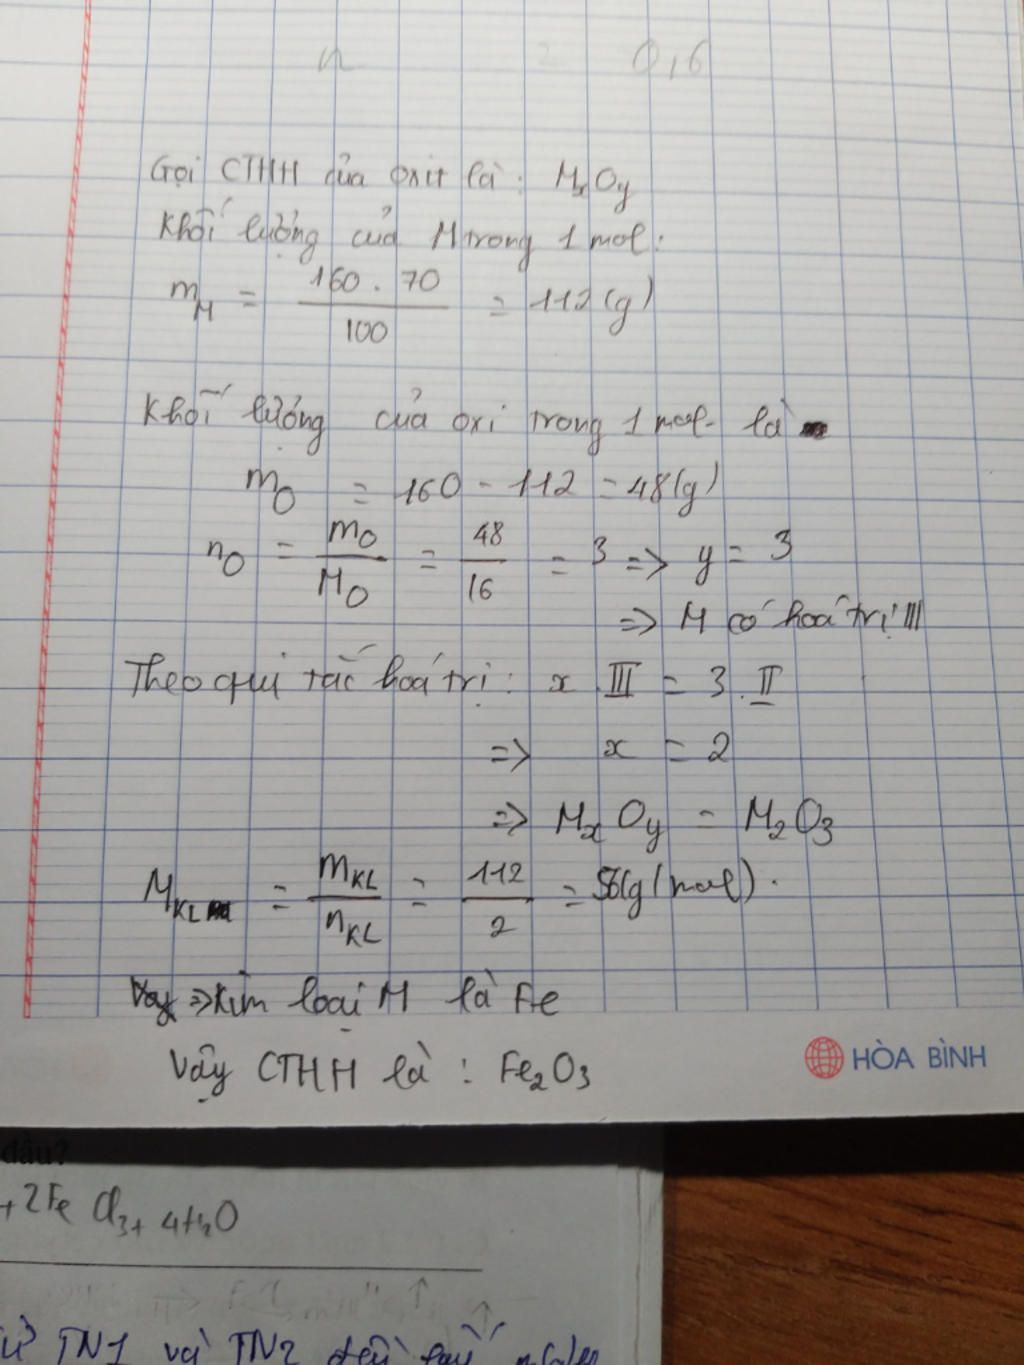 n 2 0,6
Gọi CTHH của oxit là: MxOy
Khối lượng của M trong 1 mol:
mM = 160 . 70 / 100 = 112 (g)
Khối lượng của oxi trong 1 mol là
mO = 160 - 112 = 48 (g)
nO = mO / MO = 48 / 16 = 3 => y = 3
=> M có hoá trị III
Theo qui tắc hoá trị: x . III = 3 . II
=> x = 2
=> MxOy = M2O3
MKL = mKL / nKL = 112 / 2 = 56 (g/mol).
Vậy => Kim loại M là Fe
Vậy CTHH là: Fe2O3
HÒA BÌNH
đầu?
+ 2FeCl3 + 4H2O
TN1 và TN2 đều